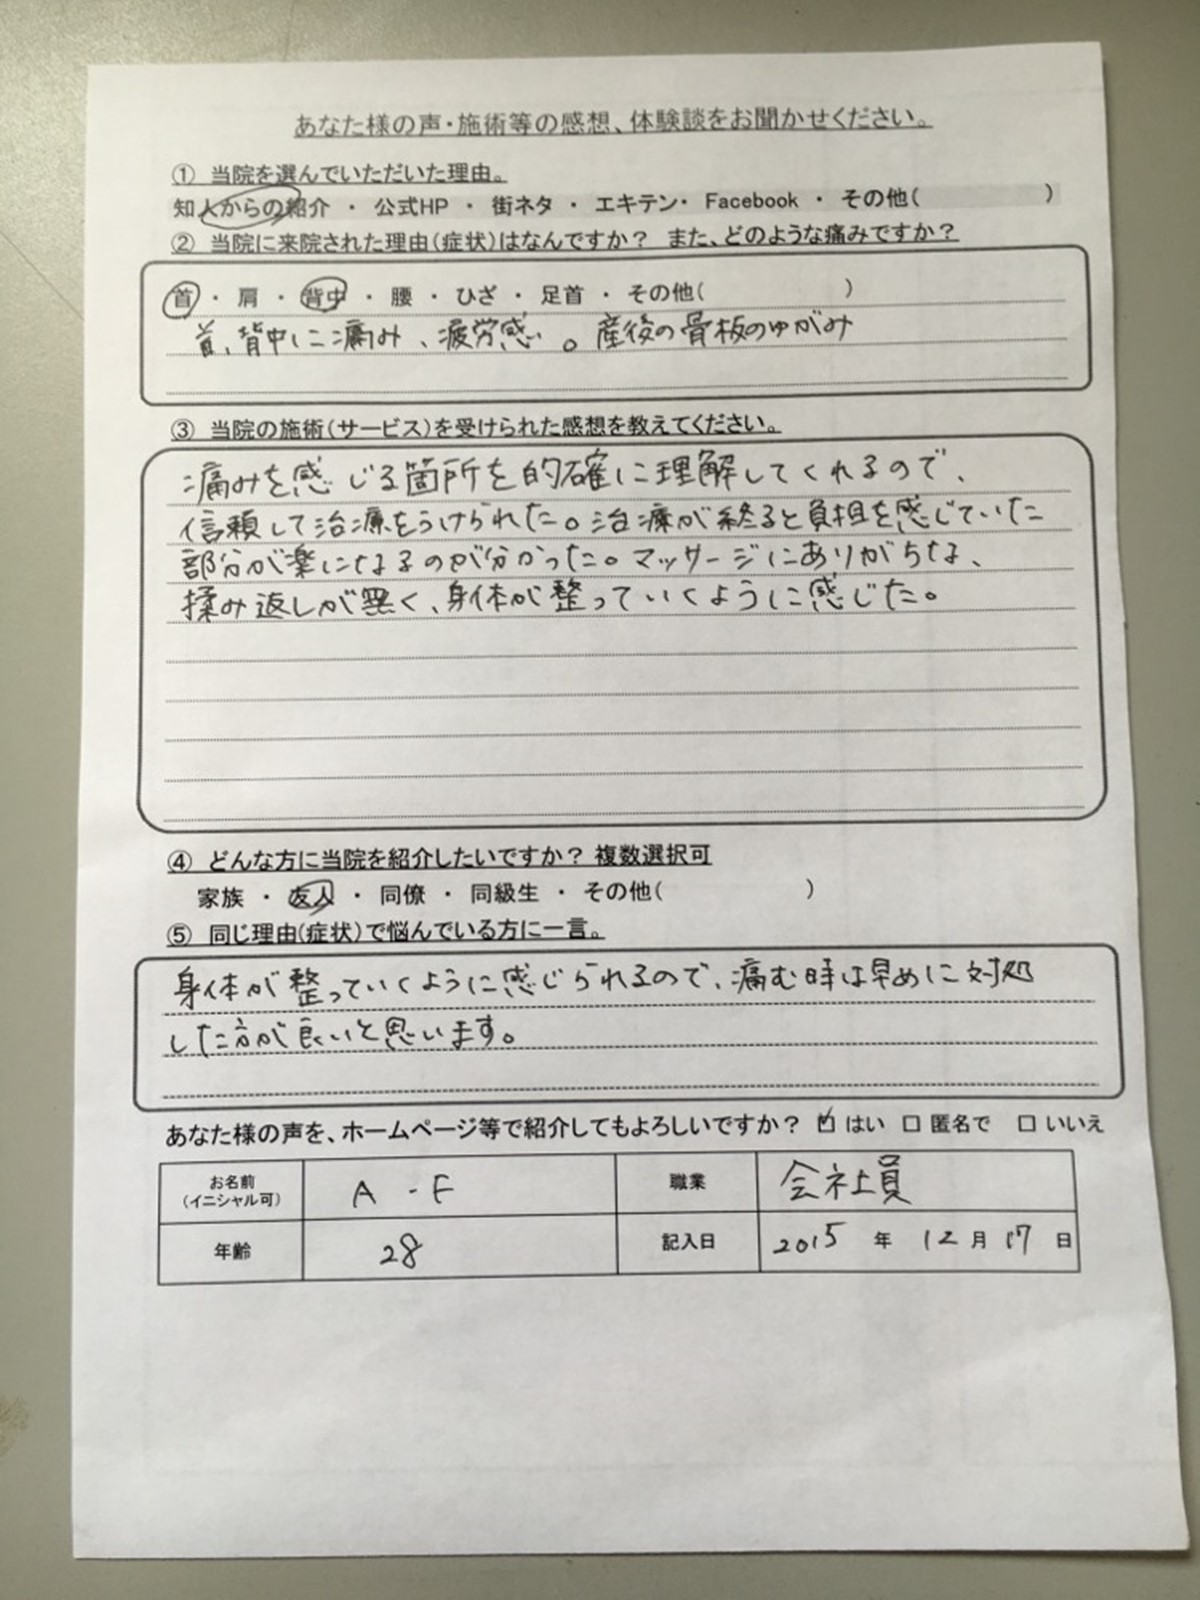 あなた様の声・施術等の感想、体験談をお聞かせください。
① 当院を選んでいただいた理由。
知人からの紹介 ・ 公式HP ・ 街ネタ ・ エキテン・ Facebook ・ その他( )
② 当院に来院された理由(症状)はなんですか? また、どのような痛みですか?
首 ・ 肩 ・ 背中 ・ 腰 ・ ひざ ・ 足首 ・ その他( )
首、背中に痛み、疲労感。産後の骨板のゆがみ
③ 当院の施術(サービス)を受けられた感想を教えてください。
痛みを感じる箇所を的確に理解してくれるので、
信頼して治療をうけられた。治療が終ると負担を感じていた
部分が楽になるのが分かった。マッサージにありがちな、
揉み返しが無く、身体が整っていくように感じた。
④ どんな方に当院を紹介したいですか? 複数選択可
家族 ・ 友人 ・ 同僚 ・ 同級生 ・ その他( )
⑤ 同じ理由(症状)で悩んでいる方に一言。
身体が整っていくように感じられるので、痛む時は早めに対処
した方が良いと思います。
あなた様の声を、ホームページ等で紹介してもよろしいですか? ☑ はい □ 匿名で □ いいえ
お名前 (イニシャル可) A - F 職業 会社員
年齢 28 記入日 2015 年 12 月 17 日